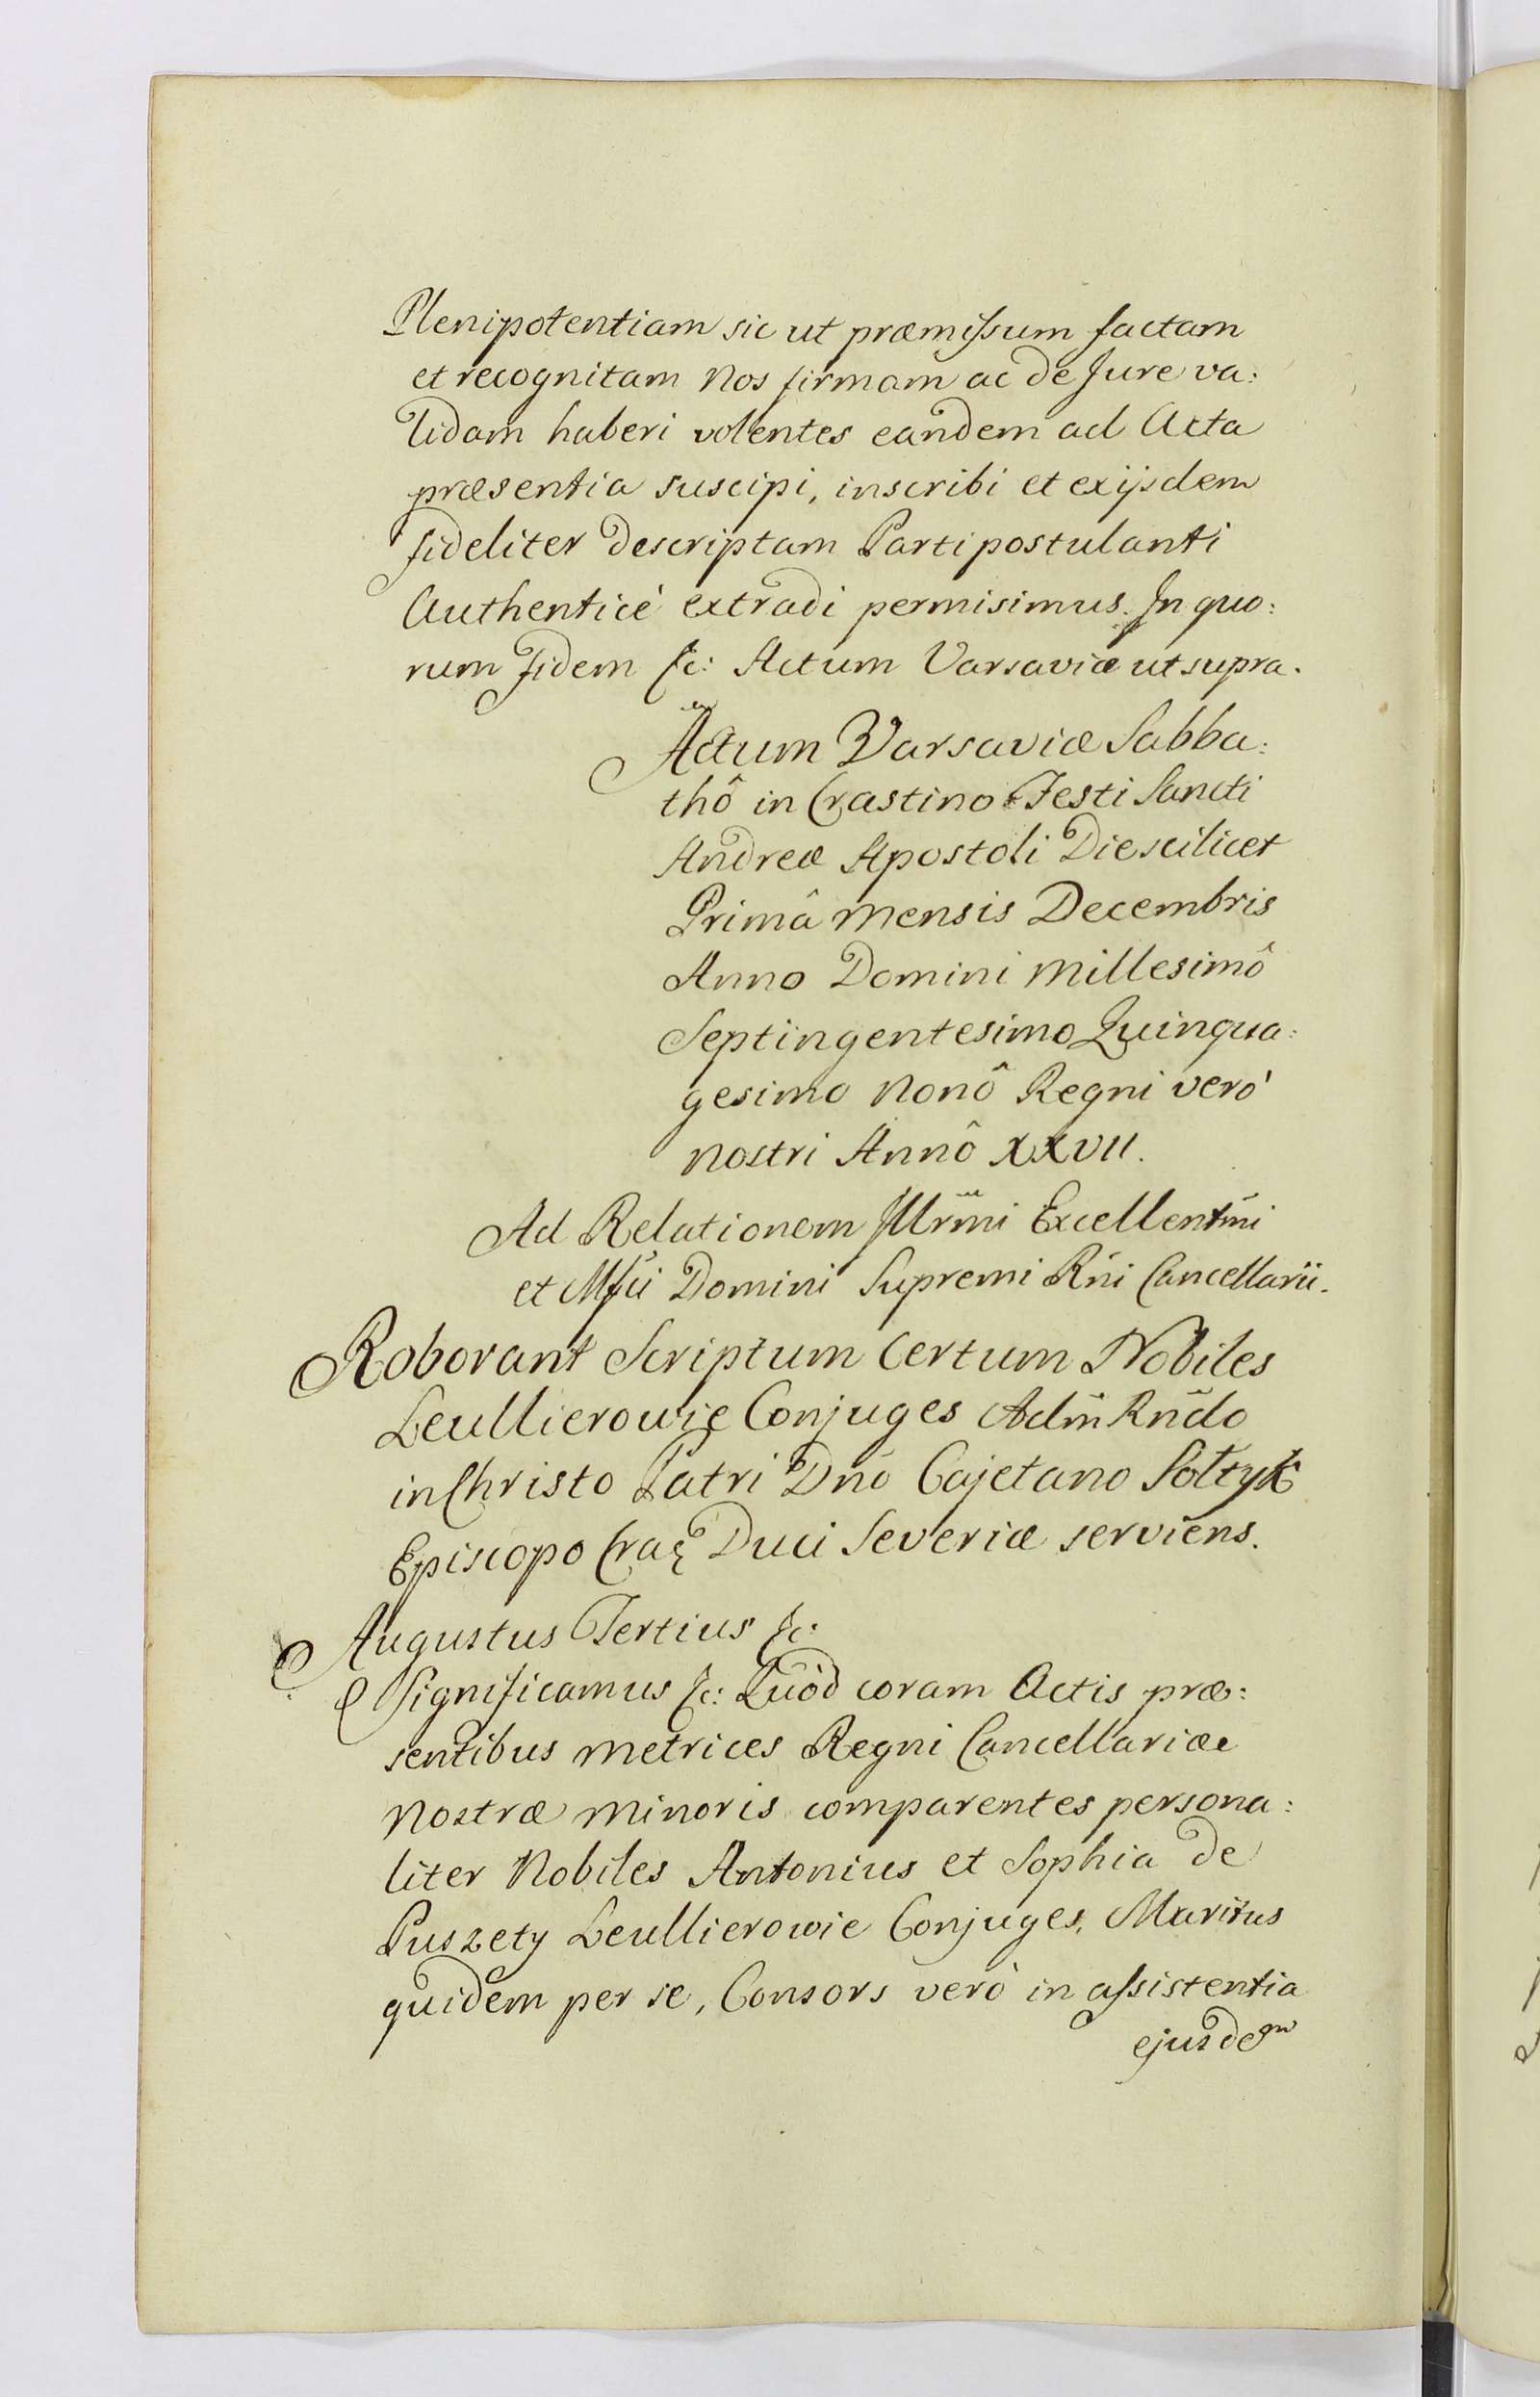 Plenipotentiam sic ut præmissum factam
et recognitam Nos firmam ac de Jure va:
lidam haberi volentes eandem ad Acta
præsentia suscipi, inscribi et exijsdem
fideliter descriptam Parti postulanti
Authenticè extradi permisimus. In quo:
rum Fidem &c: Actum Varsaviæ ut supra.
Actum Varsaviæ Sabba:
thô in Crastino Festi Sancti
Andreæ Apostoli Die scilicet
Primâ Mensis Decembris
Anno Domini Millesimô
Septingentesimo Quinqua:
gesimo Nonô Regni verò
Nostri Annô XXVII.
Ad Relationem Illrm̃i Excellentm̃i
et Mfci Domini Supremi Rñi Cancellarii.
Roborant Scriptum Certum Nobiles
Leullierowie Conjuges Adm̃ Rñdo
in Christo Patri Dño Cajetano Sołtyk
Episcopo Crac Duci Severiæ serviens.
Augustus Tertius &c:
Significamus &c: Quòd coram Actis præ:
sentibus Metrices Regni Cancellariæ
Nostræ Minoris comparentes persona:
liter Nobiles Antonius et Sophia de
Puszety Leullierowie Conjuges, Maritus
quidem per se, Consors verò in assistentia
ejusdem